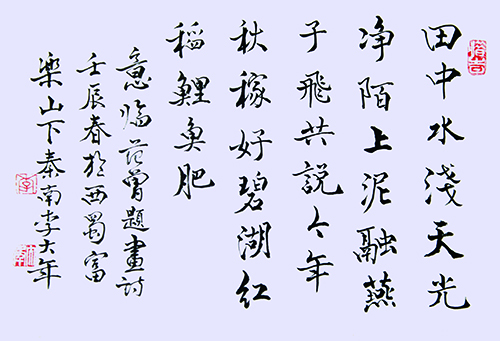 田中水淺天光
净陌上泥融燕
子飛共説今年
秋稼好碧湖红
稻鯉魚肥
意临范曾題畫詩
壬辰春於西蜀富
樂山下秦南李大年